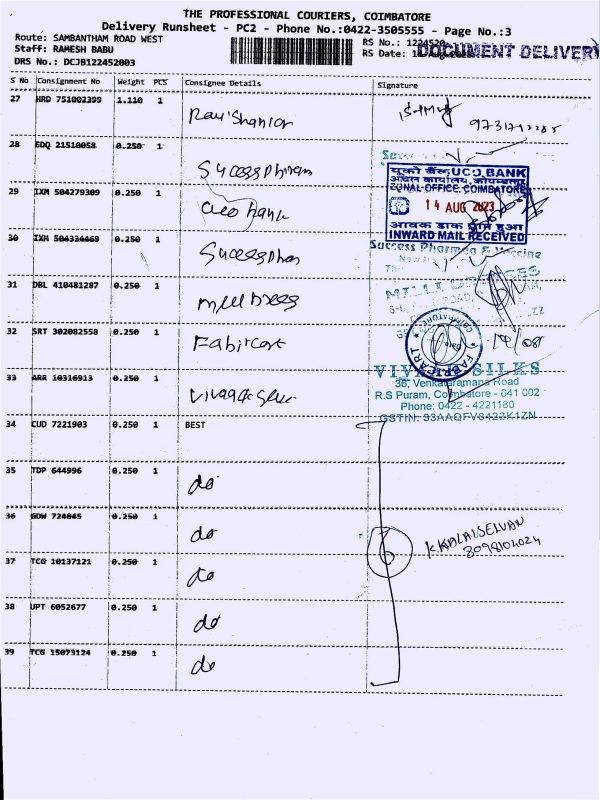 THE PROFESSIONAL COURIERS, COIMBATORE
Delivery Runsheet - PC2 - Phone No.:0422-3505555 - Page No.:3
Route: SAMBANTHAM ROAD WEST
RS No.: 1224520
Staff: RAMESH BABU
RS Date:
DOCUMENT DELIVERY
DRS No.: DCJB122452003
S No Consignment No Weight PCS Consignee Details Signature
27 HRD 751002399 1.110 1 Ravi Shankar
9731712285
28 EDQ 21510058 0.250 1 Success Pharam
यूको बैंक UCO BANK
अंचल कार्यालय, कोयम्बत्तूर
ZONAL OFFICE, COIMBATORE
29 IXM 504279309 0.250 1 uco bank
14 AUG 2023
आवक डाक प्राप्त हुआ
INWARD MAIL RECEIVED
30 IXM 504334469 0.250 1 Success Phar
Success Pharma & Vaccine
31 DBL 410481287 0.250 1
32 SRT 302082558 0.250 1 Fabricart
COIMBATORE
FABRICART
14/08
33 ARR 10316913 0.250 1
SILKS
36, Venkataramana Road
R.S Puram, Coimbatore - 641 002
Phone: 0422 - 4221180
GSTIN: 33AAQFV8423K1ZN
34 CUD 7221903 0.250 1 BEST
35 TDP 644996 0.250 1 do
36 GDW 724845 0.250 1 do
K. KALAISELVAN
8098104024
37 TCG 10137121 0.250 1 do
38 UPT 6052677 0.250 1 do
39 TCG 15073124 0.250 1 do